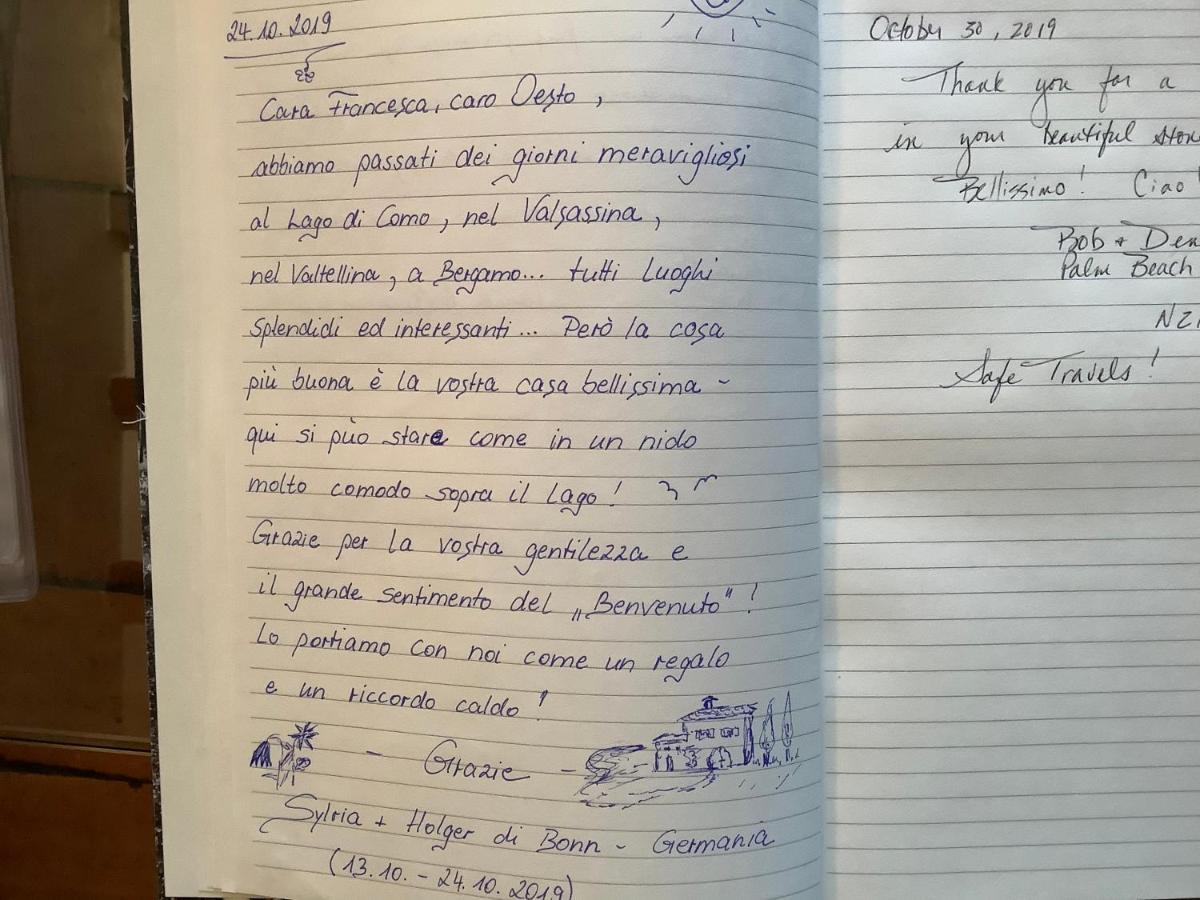 24.10.2019
Cara Francesca, caro Oesto,
abbiamo passati dei giorni meravigliosi
al Lago di Como, nel Valsassina,
nel Valtellina, a Bergamo... tutti Luoghi
splendidi ed interessanti... Però la cosa
più buona è la vostra casa bellissima -
qui si può stare come in un nido
molto comodo sopra il Lago!
Grazie per la vostra gentilezza e
il grande sentimento del „Benvenuto"!
Lo portiamo con noi come un regalo
e un riccordo caldo!
- Grazie -
Sylvia + Holger di Bonn - Germania
(13.10. - 24.10.2019)
October 30, 2019
Thank you for a
in your beautiful
Bellissimo! Ciao!
Bob +
Palm Beach
Safe Travels!